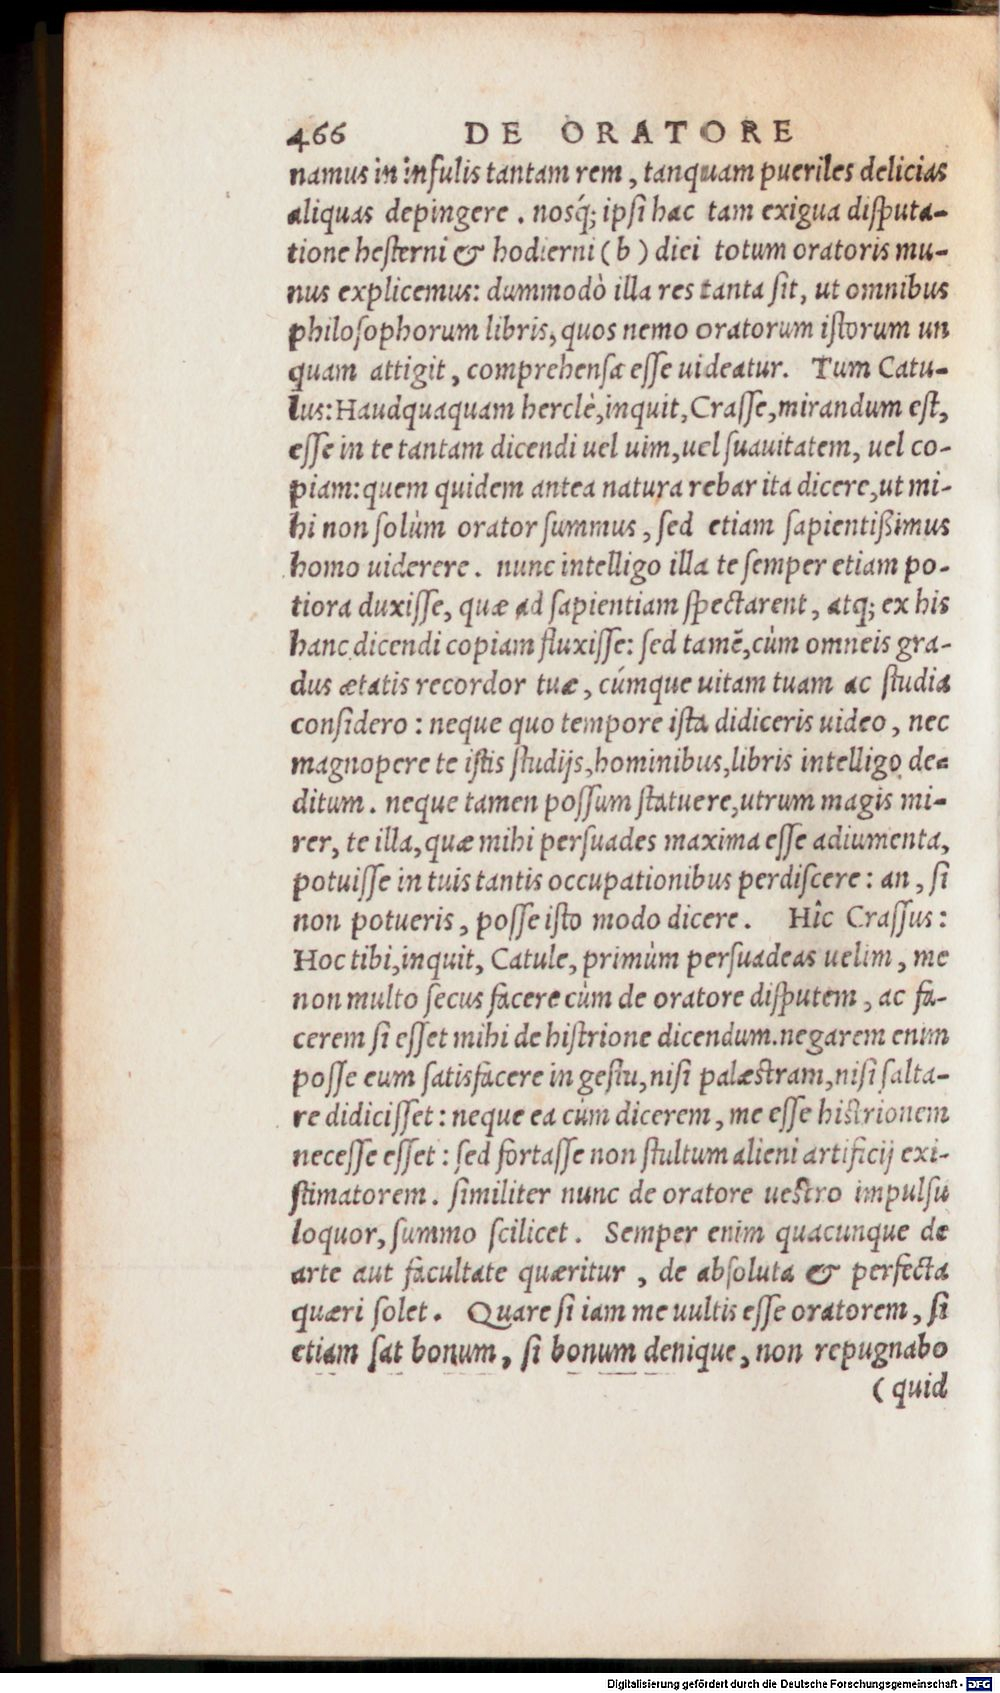 466 DE ORATORE
namus in insulis tantam rem, tanquam pueriles delicias
aliquas depingere. nosq́; ipsi hac tam exigua disputa-
tione hesterni & hodierni (b) diei totum oratoris mu-
nus explicemus: dummodò illa res tanta sit, ut omnibus
philosophorum libris, quos nemo oratorum istorum un
quam attigit, comprehensa esse uideatur. Tum Catu-
lus: Haudquaquam herclè, inquit, Crasse, mirandum est,
esse in te tantam dicendi uel uim, uel suauitatem, uel co-
piam: quem quidem antea natura rebar ita dicere, ut mi-
hi non solùm orator summus, sed etiam sapientißimus
homo uiderere. nunc intelligo illa te semper etiam po-
tiora duxisse, quæ ad sapientiam spectarent, atq; ex his
hanc dicendi copiam fluxisse: sed tamẽ, cùm omneis gra-
dus ætatis recordor tuæ, cúmque uitam tuam ac studia
considero: neque quo tempore ista didiceris uideo, nec
magnopere te istis studijs, hominibus, libris intelligo de-
ditum. neque tamen possum statuere, utrum magis mi-
rer, te illa, quæ mihi persuades maxima esse adiumenta,
potuisse in tuis tantis occupationibus perdiscere: an, si
non potueris, posse isto modo dicere. Hîc Crassus:
Hoc tibi, inquit, Catule, primùm persuadeas uelim, me
non multo secus facere cùm de oratore disputem, ac fa-
cerem si esset mihi de histrione dicendum. negarem enim
posse eum satisfacere in gestu, nisi palæstram, nisi salta-
re didicisset: neque ea cùm dicerem, me esse histrionem
necesse esset: sed fortasse non stultum alieni artificij exi-
stimatorem. similiter nunc de oratore uestro impulsu
loquor, summo scilicet. Semper enim quacunque de
arte aut facultate quæritur, de absoluta & perfecta
quæri solet. Quare si iam me uultis esse oratorem, si
etiam sat bonum, si bonum denique, non repugnabo
(quid
Digitalisierung gefördert durch die Deutsche Forschungsgemeinschaft - DFG